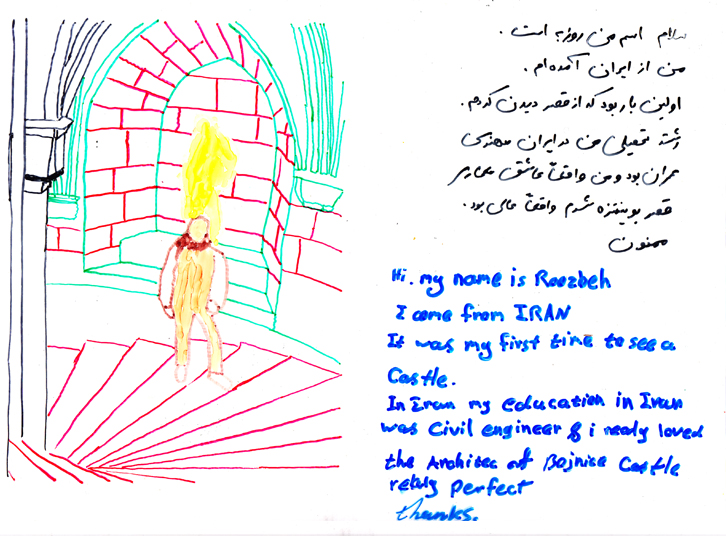 سلام اسم من روزبه است.
من از ایران آمده ام.
اولین بار بود که از قصر دیدن کردم.
رشته تحصیلی من در ایران مهندسی
عمران بود و من واقعاً عاشق معماری
قصر بوینیتزه شدم واقعاً عالی بود.
ممنون
Hi. my name is Roozbeh
I come from IRAN
It was my first time to see a
Castle.
In Iran my education in Iran
was Civil engineer & i really loved
the Architec of Bojnice Castle
realy perfect
thanks.